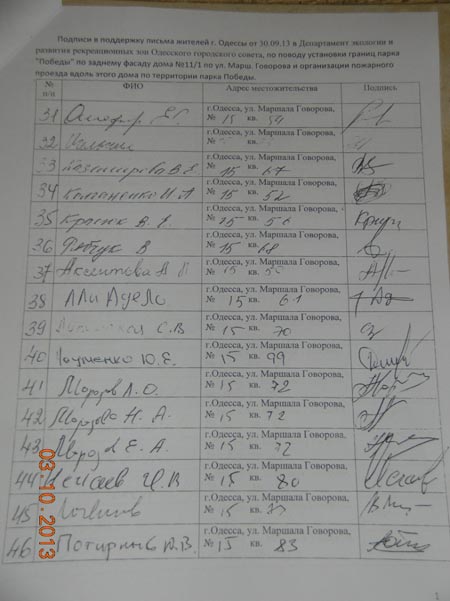 Подписи в поддержку письма жителей г. Одессы от 30.09.13 в Департамент экологии и
развития рекреационных зон Одесского городского совета, по поводу установки границ парка
"Победы" по заднему фасаду дома №11/1 по ул. Марш. Говорова и организации пожарного
проезда вдоль этого дома по территории парка Победы.
№ п/п ФИО Адрес местожительства Подпись
31 г.Одесса, ул. Маршала Говорова,
№ 15 кв. 54
32 г.Одесса, ул. Маршала Говорова,
№ кв.
33 В.Е. г.Одесса, ул. Маршала Говорова,
№ 15 кв. 67
34 И.А г.Одесса, ул. Маршала Говорова,
№ 15 кв. 52
35 г.Одесса, ул. Маршала Говорова,
№ кв.
36 В г.Одесса, ул. Маршала Говорова,
№ 15 кв. 68
37 г.Одесса, ул. Маршала Говорова,
№ 15 кв.
38 г.Одесса, ул. Маршала Говорова,
№ 15 кв. 61
39 С.В г.Одесса, ул. Маршала Говорова,
№ 15 кв. 70
40 Ю.Е. г.Одесса, ул. Маршала Говорова,
№ 15 кв. 99
41 Морозов Л.О. г.Одесса, ул. Маршала Говорова,
№ 15 кв. 72
42 Морозова Н.А. г.Одесса, ул. Маршала Говорова,
№ 15 кв. 72
43 Е.А. г.Одесса, ул. Маршала Говорова,
№ 15 кв. 72
44 г.Одесса, ул. Маршала Говорова,
№ 15 кв. 80
45 г.Одесса, ул. Маршала Говорова,
№ 15 кв.
46 г.Одесса, ул. Маршала Говорова,
№ 15 кв. 83
03.10.2013
1